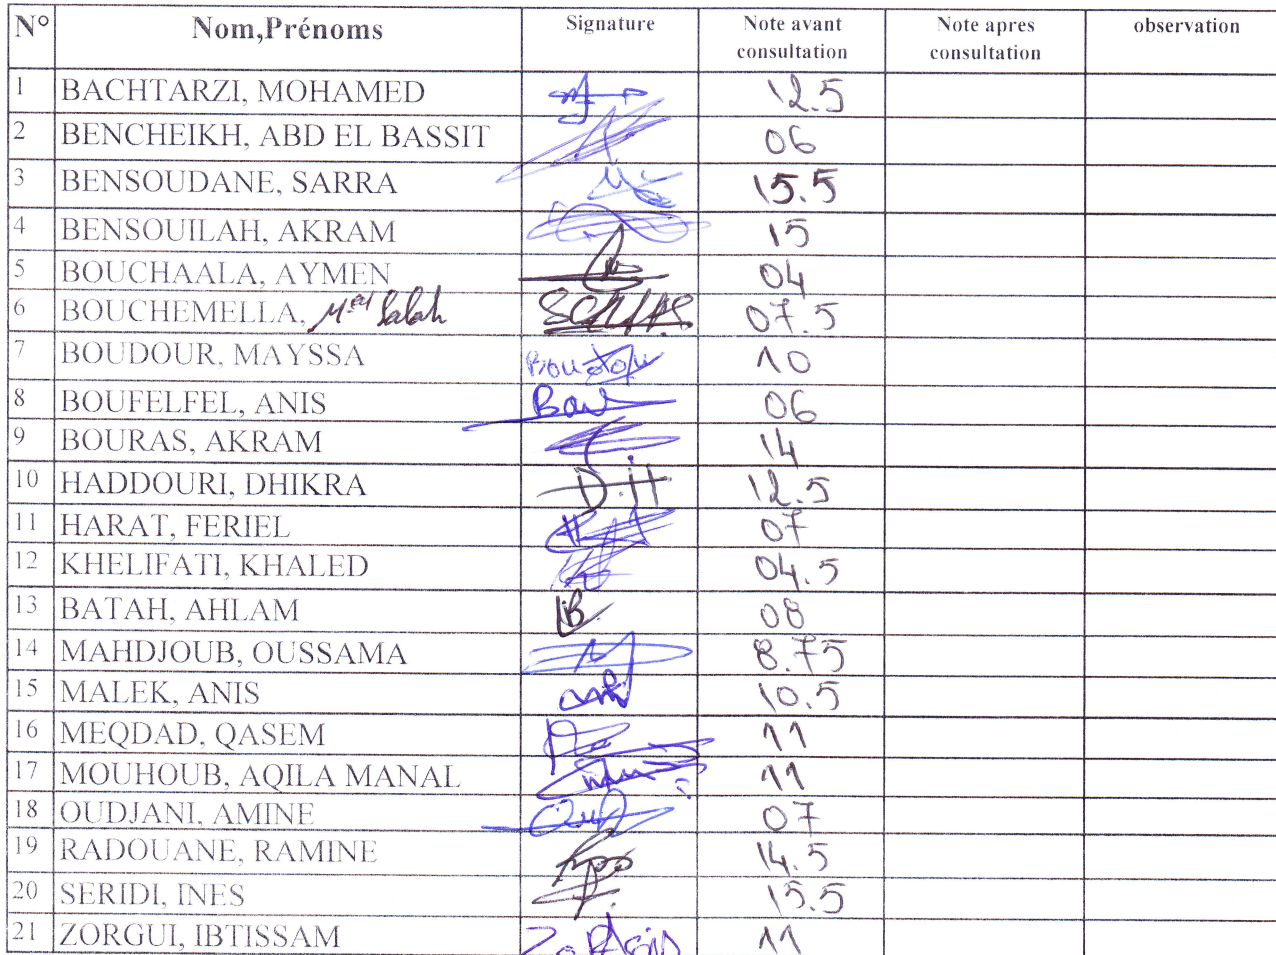 N° Nom,Prénoms Signature Note avant consultation Note apres consultation observation
1 BACHTARZI, MOHAMED 12.5
2 BENCHEIKH, ABD EL BASSIT 06
3 BENSOUDANE, SARRA 15.5
4 BENSOUILAH, AKRAM 15
5 BOUCHAALA, AYMEN 04
6 BOUCHEMELLA, Med Salah 07.5
7 BOUDOUR, MAYSSA 10
8 BOUFELFEL, ANIS 06
9 BOURAS, AKRAM 14
10 HADDOURI, DHIKRA D.H 12.5
11 HARAT, FERIEL 07
12 KHELIFATI, KHALED 04.5
13 BATAH, AHLAM 08
14 MAHDJOUB, OUSSAMA 8.75
15 MALEK, ANIS 10.5
16 MEQDAD, QASEM 11
17 MOUHOUB, AQILA MANAL 11
18 OUDJANI, AMINE 07
19 RADOUANE, RAMINE 14.5
20 SERIDI, INES 15.5
21 ZORGUI, IBTISSAM 11